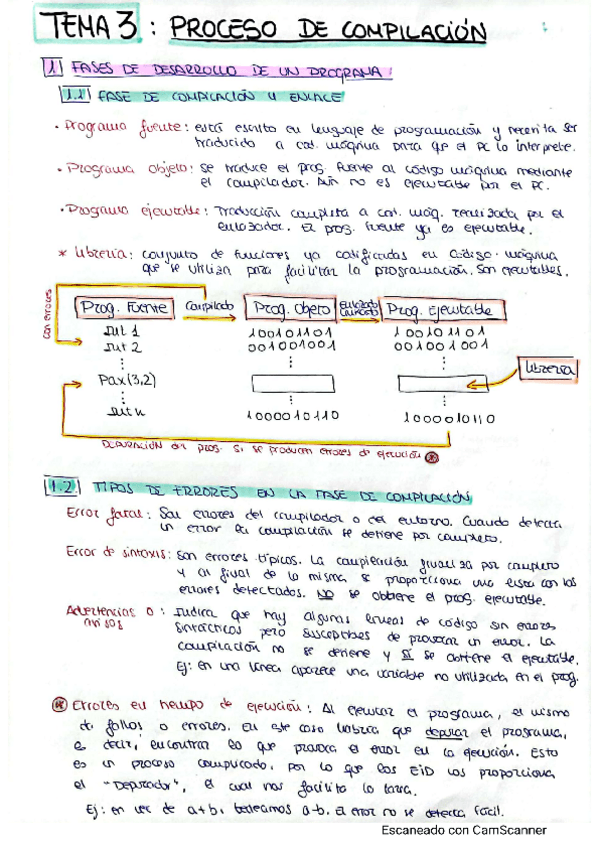 TEMA 3 : PROCESO DE COMPILACIÓN
1 FASES DE DESARROLLO DE UN PROGRAMA:
1.1 FASE DE COMPILACIÓN Y ENLACE
· Programa fuente: está escrito en lenguaje de programación y necesita ser
traducido a cód. máquina para que el PC lo interprete.
· Programa objeto: se traduce el prog. fuente al código máquina mediante
el compilador. Aún no es ejecutable por el PC.
· Programa ejecutable: Traducción completa a cód. máq. realizada por el
enlazador. El prog. fuente ya es ejecutable.
* librería: conjunto de funciones ya codificadas en código máquina
que se utiliza para facilitar la programación. Son ejecutables.
con errores
Prog. Fuente Compilado Prog. Objeto Enlazado Prog. Ejecutable
Int 1 100101101 100101101
Int 2 001001001 001001001
librería
Pax(3,2)
Int n 1000010110 1000010110
DEPURACIÓN del prog. si se producen errores de ejecución *
1.2 TIPOS DE ERRORES EN LA FASE DE COMPILACIÓN
Error fatal: Son errores del compilador o del entorno. Cuando detecta
un error la compilación se detiene por completo.
Error de sintaxis: Son errores típicos. La compilación finaliza por completo
y al final de la misma se proporciona una lista con los
errores detectados. NO se obtiene el prog. ejecutable.
Advertencias o : Indica que hay algunas líneas de código sin errores
avisos sintácticos pero susceptibles de provocar un error. La
compilación no se detiene y SÍ se obtiene el ejecutable.
Ej: en una línea aparece una variable no utilizada en el prog.
* Errores en tiempo de ejecución: Al ejecutar el programa, el mismo
da fallos o errores. En este caso habría que depurar el programa,
es decir, encontrar lo que provoca el error en la ejecución. Esto
es un proceso complicado, por lo que los EID nos proporciona
el "Depurador", el cual nos facilita la tarea.
Ej: en vez de a+b, tecleamos a-b. El error no se detecta fácil.
Escaneado con CamScanner